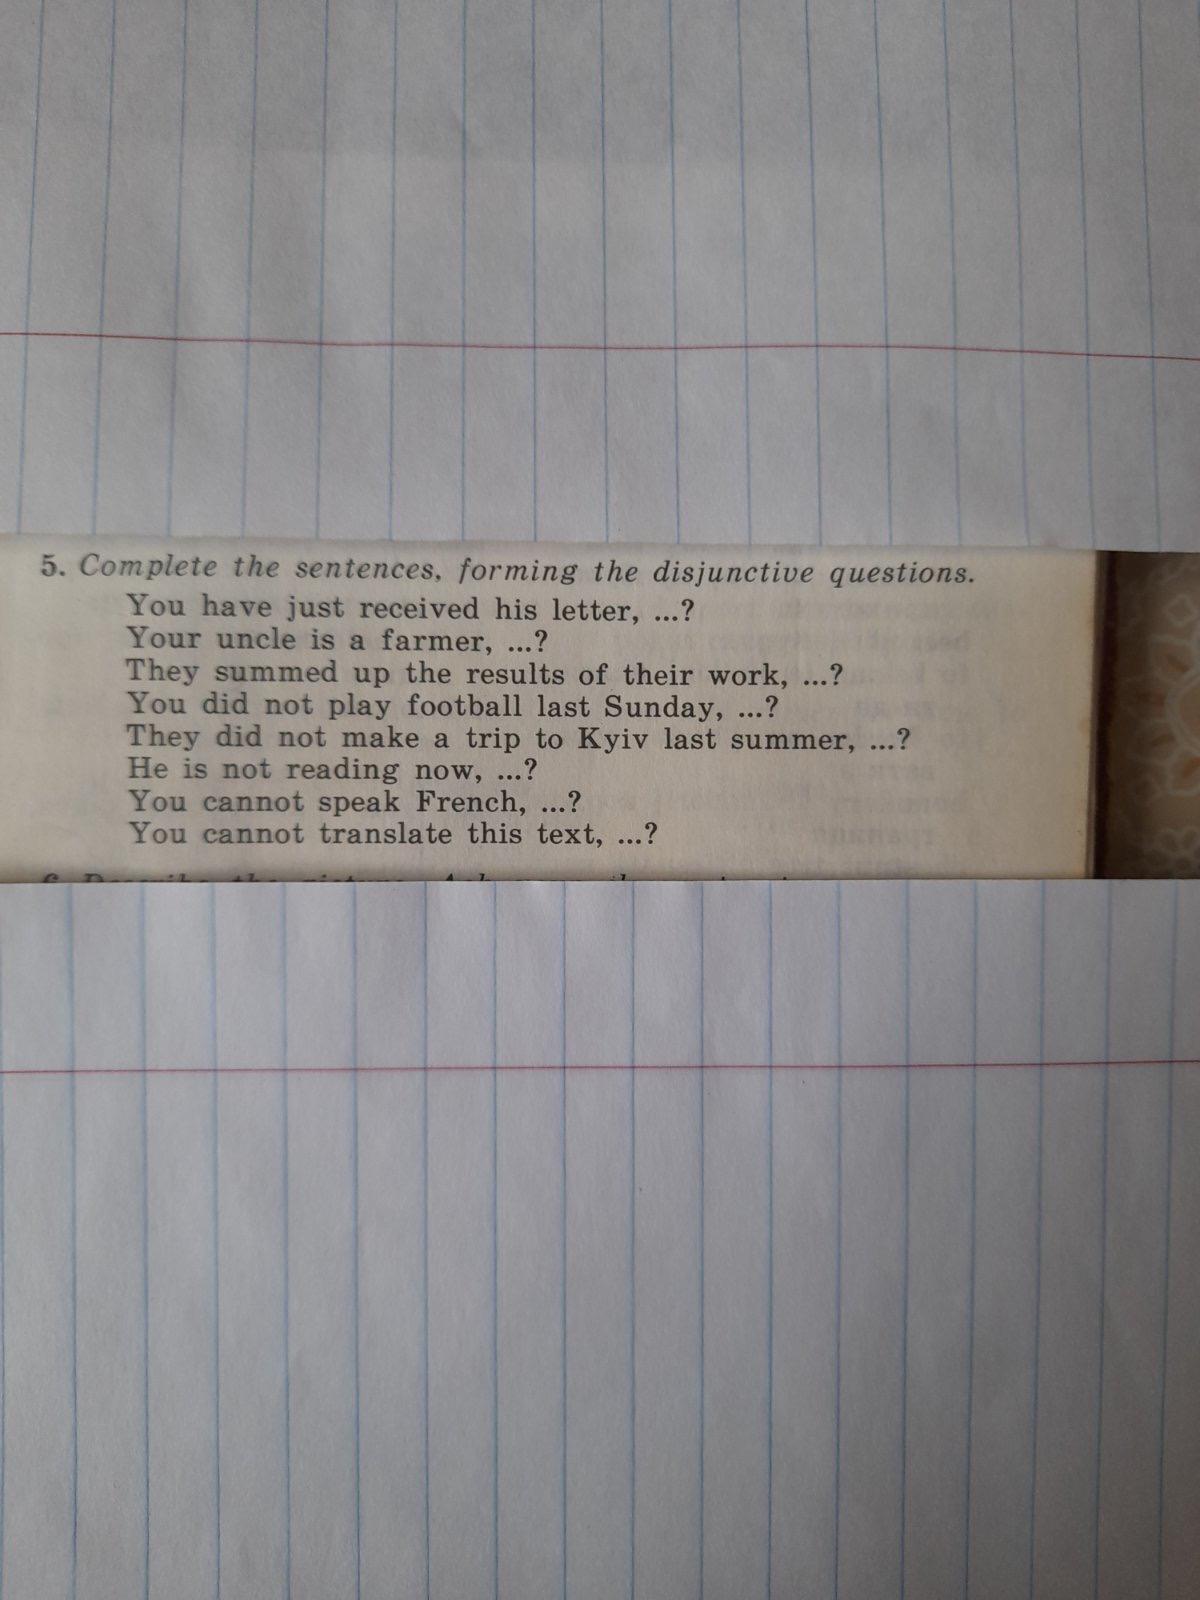 5. Complete the sentences, forming the disjunctive questions.
You have just received his letter, ...?
Your uncle is a farmer, ...?
They summed up the results of their work, ...?
You did not play football last Sunday, ...?
They did not make a trip to Kyiv last summer, ...?
He is not reading now, ...?
You cannot speak French, ...?
You cannot translate this text, ...?